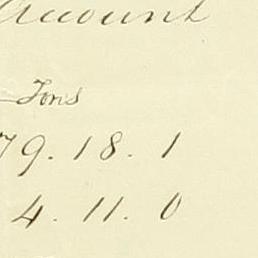 Account
Tons
79. 18. 1
4. 11. 0